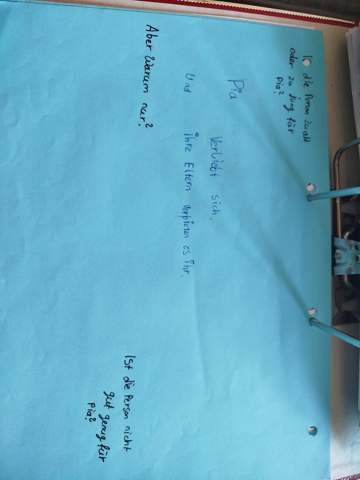 Ist die Person zu alt
oder zu jung für
Pia?
Pia
verliebt sich.
Und ihre Eltern verbieten es ihr.
Aber Warum nur?
Ist die Person nicht
gut genug für
Pia?